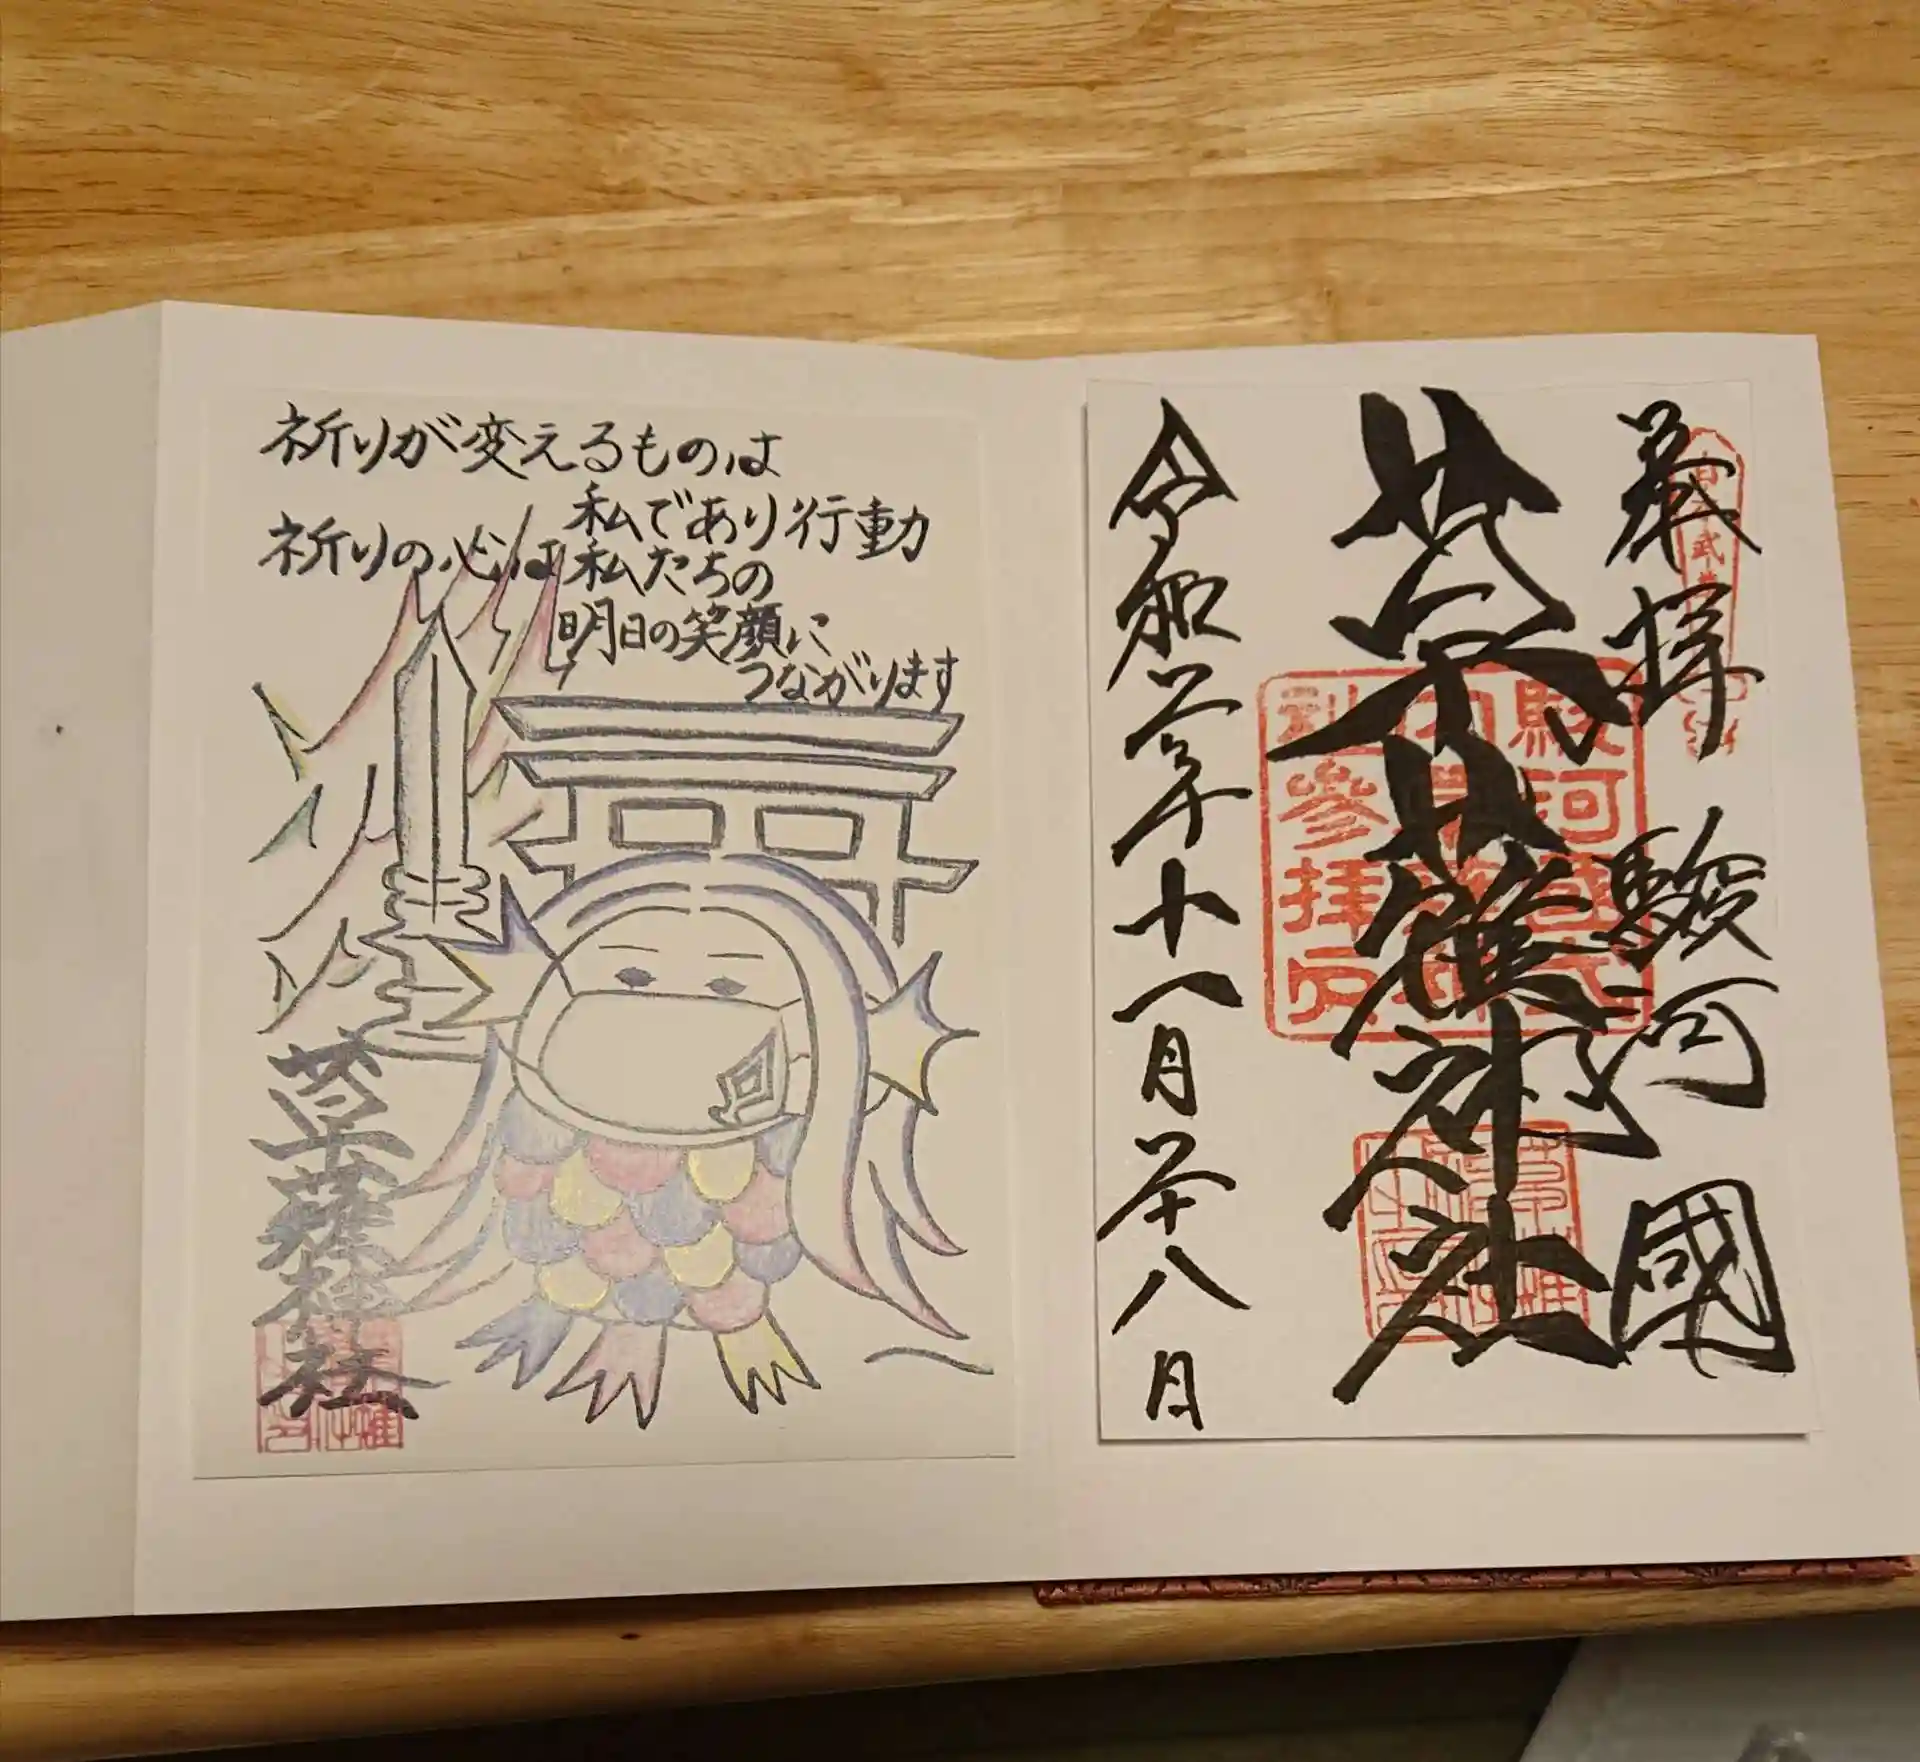 奉拝 駿河國
草薙神社
令和二年十一月二十八日
祈りが変えるものは
私であり行動
祈りの心は私たちの
明日の笑顔に
つながります
草薙神社